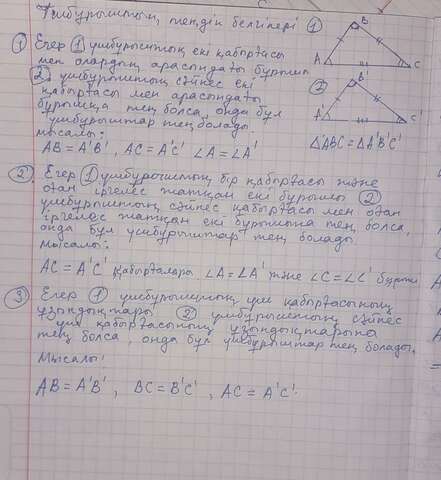 Үшбұрыштың теңдік белгілері ①
① Егер 1 үшбұрыштың екі қабырғасы
мен олардың арасындағы бұрышы
2 үшбұрыштың сәйкес екі
қабырғасы мен арасындағы
бұрышқа тең болса, онда бұл
үшбұрыштар тең болады.
мысалы:
AB = A'B', AC = A'C' ∠A = ∠A'
B
A
C
②
B'
A'
C'
ΔABC = ΔA'B'C'
② Егер 1 үшбұрыштың бір қабырғасы және
оған іргелес жатқан екі бұрышы 2
үшбұрыштың сәйкес қабырғасы мен оған
іргелес жатқан екі бұрышына тең болса,
онда бұл үшбұрыштар тең болады
Мысалы:
AC = A'C' қабырғалары ∠A = ∠A' және ∠C = ∠C'
③ Егер 1 үшбұрыштың үш қабырғасының
ұзындықтары 2 үшбұрыштың сәйкес
үш қабырғасының ұзындықтарына
тең болса, онда бұл үшбұрыштар тең болады,
Мысалы:
AB = A'B', BC = B'C', AC = A'C'.